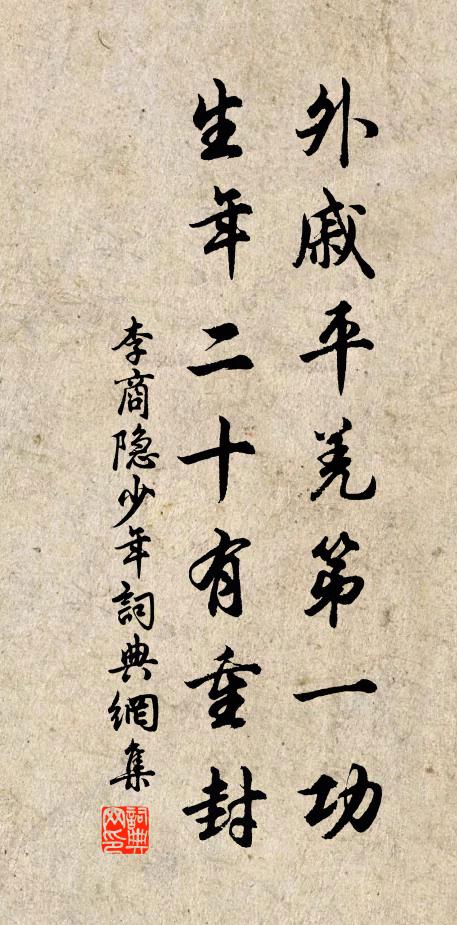 外戚平羌第一功
生年二十有重封
李商隐少年詞典網集
詞典网印